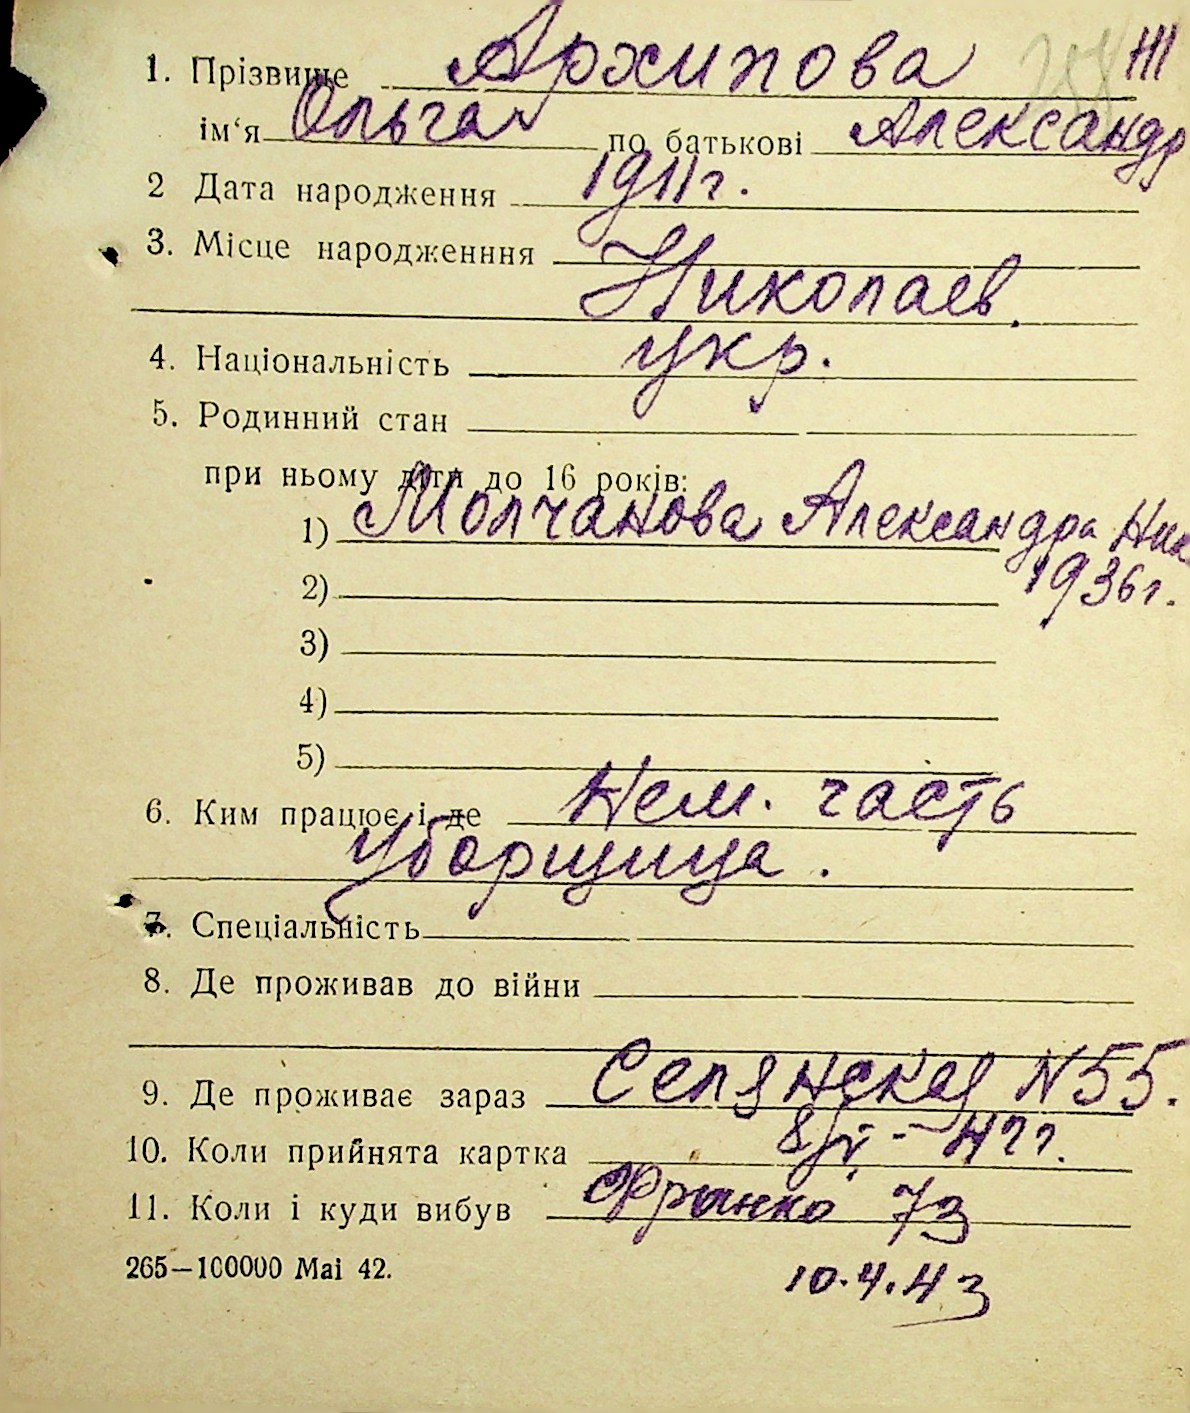 1. Прізвище Архипова III
ім‘я Ольга по батькові Александр
2 Дата народження 1911г.
3. Місце народженння
Николаев.
4. Національність укр.
5. Родинний стан
при ньому діти до 16 років:
1) Молчанова Александра Ник
1936г.
2)
3)
4)
5)
6. Ким працює і де Нем. часть
Уборщица.
7. Спеціальність
8. Де проживав до війни
9. Де проживає зараз Селянская N 55.
10. Коли прийнята картка 8/V - 42г.
11. Коли і куди вибув Франко 73
265—100000 Mai 42.
10.4.43